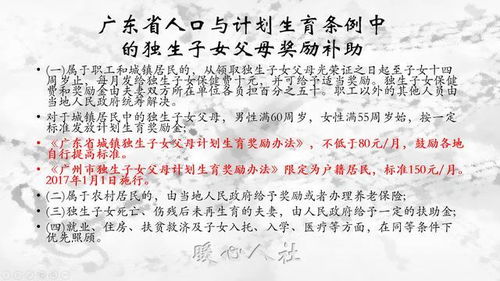 广东省人口与计划生育条例中
的独生子女父母奖励补助
• (一)属于职工和城镇居民的，从领取独生子女父母光荣证之日起至子女十四
周岁止，每月发给独生子女保健费十元，并可给予适当奖励。独生子女保健
费和奖励金由夫妻双方所在单位各负担百分之五十。职工以外的其他人员由
当地人民政府统筹解决。
• 对于城镇居民中的独生子女父母，男性满60周岁，女性满55周岁始，按一定
标准发放计划生育奖励金；
• 《广东省城镇独生子女父母计划生育奖励办法》，不低于80元/月，鼓励各地
自行提高标准。
• 《广州市独生子女父母计划生育奖励办法》限定为户籍居民，标准150元/月。
2017年1月1日施行。
• (二)属于农村居民的，由当地人民政府给予奖励或者办理养老保险；
• (三)独生子女死亡、伤残后未再生育的夫妻，由人民政府给予一定的扶助金；
• (四)就业、住房、扶贫救济及子女入托、入学、医疗等方面，在同等条件下
优先照顾。
暖心人社